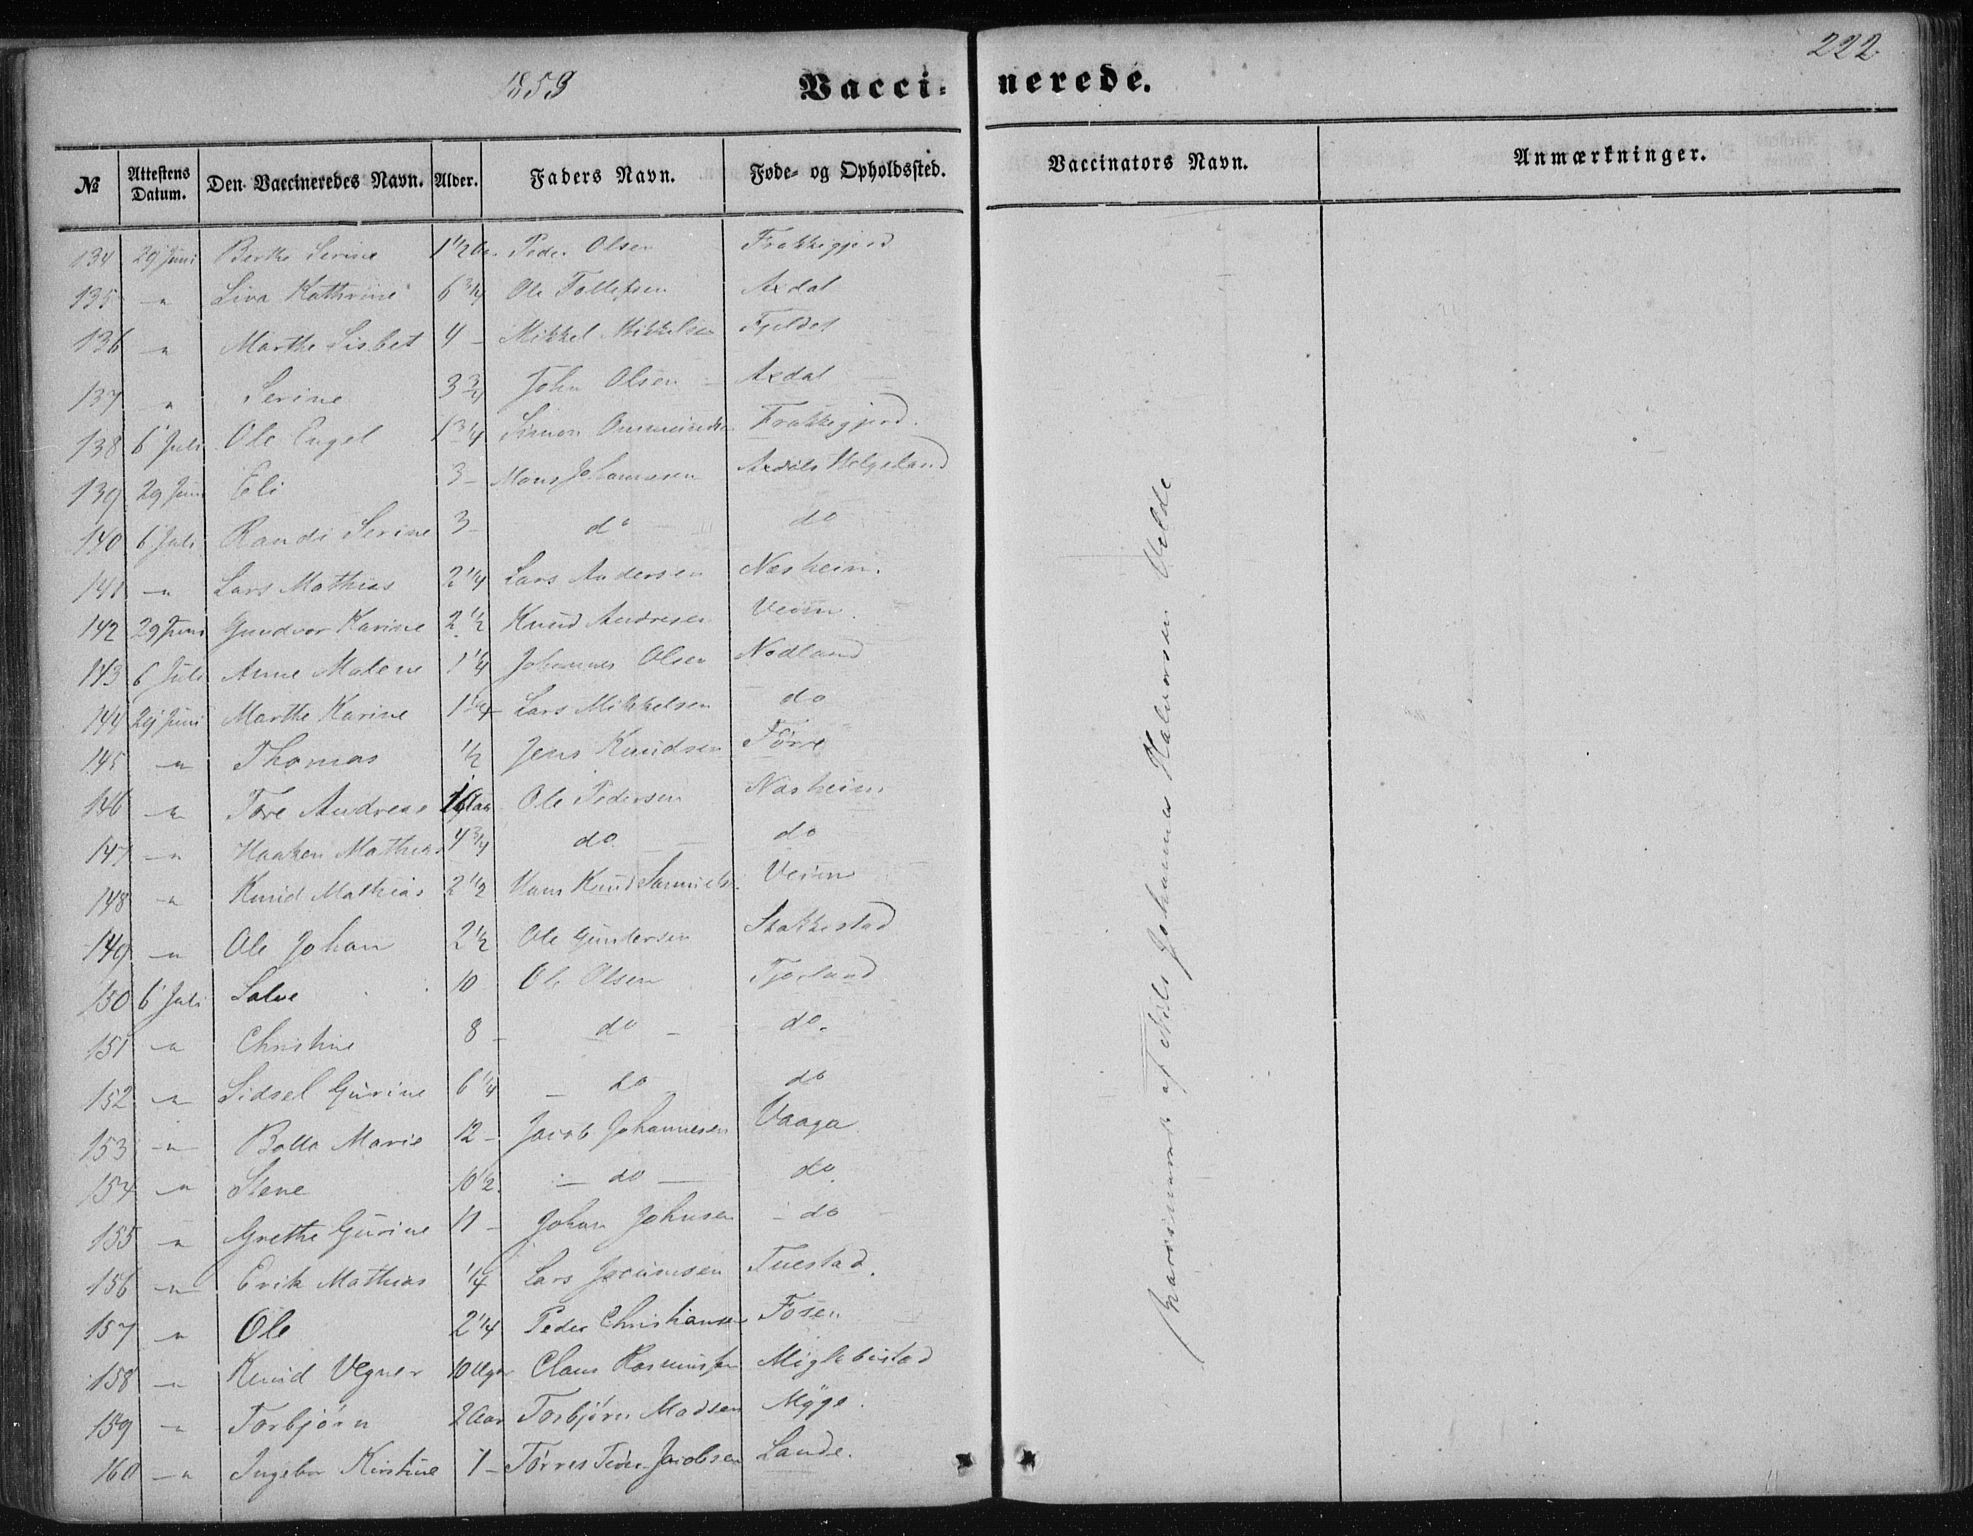 222
1859 Vaccinerede.
№ Attestens Datum. Den Vaccineredes Navn. Alder. Faders Navn. Føde- og Opholdssted. Vaccinators Navn. Anmærkninger.
134 29 Juni Berthe Serine 1 1/2 Aar Peder Olsen Frakkegjerd
135 -"- Liva Kathrine 6 3/4 Ole Tollefsen Axdal
136 -"- Marthe Lisbet 4 - Mikkel Mikkelsen Fjeldet
137 " Serine 3 3/4 John Olsen - Axdal
138 6 Juli Ole Engel 1 3/4 Simon Ommundsen Frakkegjerd.
139 29 Juni Eli 3 - Mons Johannesen Axdals Helgeland
140 6 Juli Randi Serine 3 - do do
141 -"- Lars Mathias 2 1/4 Lars Andersen Næsheim.
142 29 Juni Gundvor Karine 2 1/2 Knud Andresen Veim
143 6 Juli Anne Malene 1 1/4 Johannes Olsen Nodland
144 29 Juni Marthe Karine 1 1/4 Lars Mikkelsen do
145 -"- Thomas 1/2 Jens Knudsen Førre
146 -"- Tore Andreas Aar Ole Pedersen Næsheim
147 -"- Haaken Mathias 4 3/4 do do
148 -"- Knud Mathias 2 1/2 Hans Knud Samuels. Veim
149 -"- Ole Johan 2 1/2 Ole Guntersen Stakkestad
150 6 Juli Salve 10 Ole Olsen Tjorland
151 -"- Christine 8 - do - do.
152 -"- Sidsel Gurine 6 1/4 - do do
153 -"- Bolla Marie 12 - Jacob Johannesen Vaaga
154 -"- Stene 10 1/2. - do - do.
155 -"- Grethe Gurine 11 - Johan Johnsen - do -
156 -"- Erik Mathias 1/4 Lars Tuestad.
157 -"- Ole 2 1/4 Peder Christiansen Fosen
158 -"- Knud Vegner 10 Uger Claus Rasmussen
159 -"- Torbjørn 2 Aar Torbjørn Madsen Myge.
160 -"- Ingebor Kirstine 7 - Tørres Peder Jacobsen Lande.
Vaccineret af Nils Johannes Halvorsen Velde